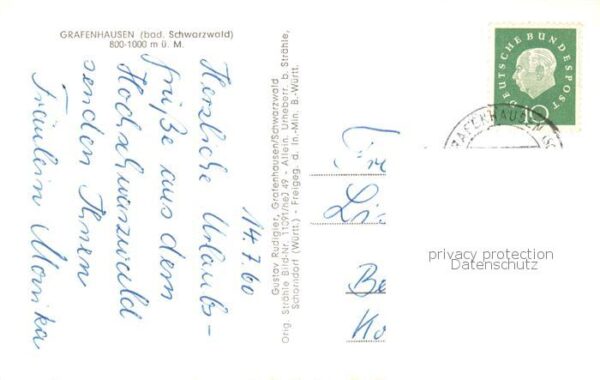 GRAFENHAUSEN (bad. Schwarzwald)
800-1000 m ü. M.
14.7.60
Herzliche Urlaubs-
grüße aus dem
Hochschwarzwald
senden Ihnen
Fräulein Monika
Gustav Rudigier, Grafenhausen/Schwarzwald
Orig. Strähle Bild-Nr. 11091/he) 49 - Allein. Urheberr. b. Strähle,
Schorndorf (Württ.) - Freigeg. d. In.-Min. B.-Württ.
DEUTSCHE BUNDESPOST
10
GRAFENHAUSEN
Fr
Li
Be
Ko
privacy protection
Datenschutz